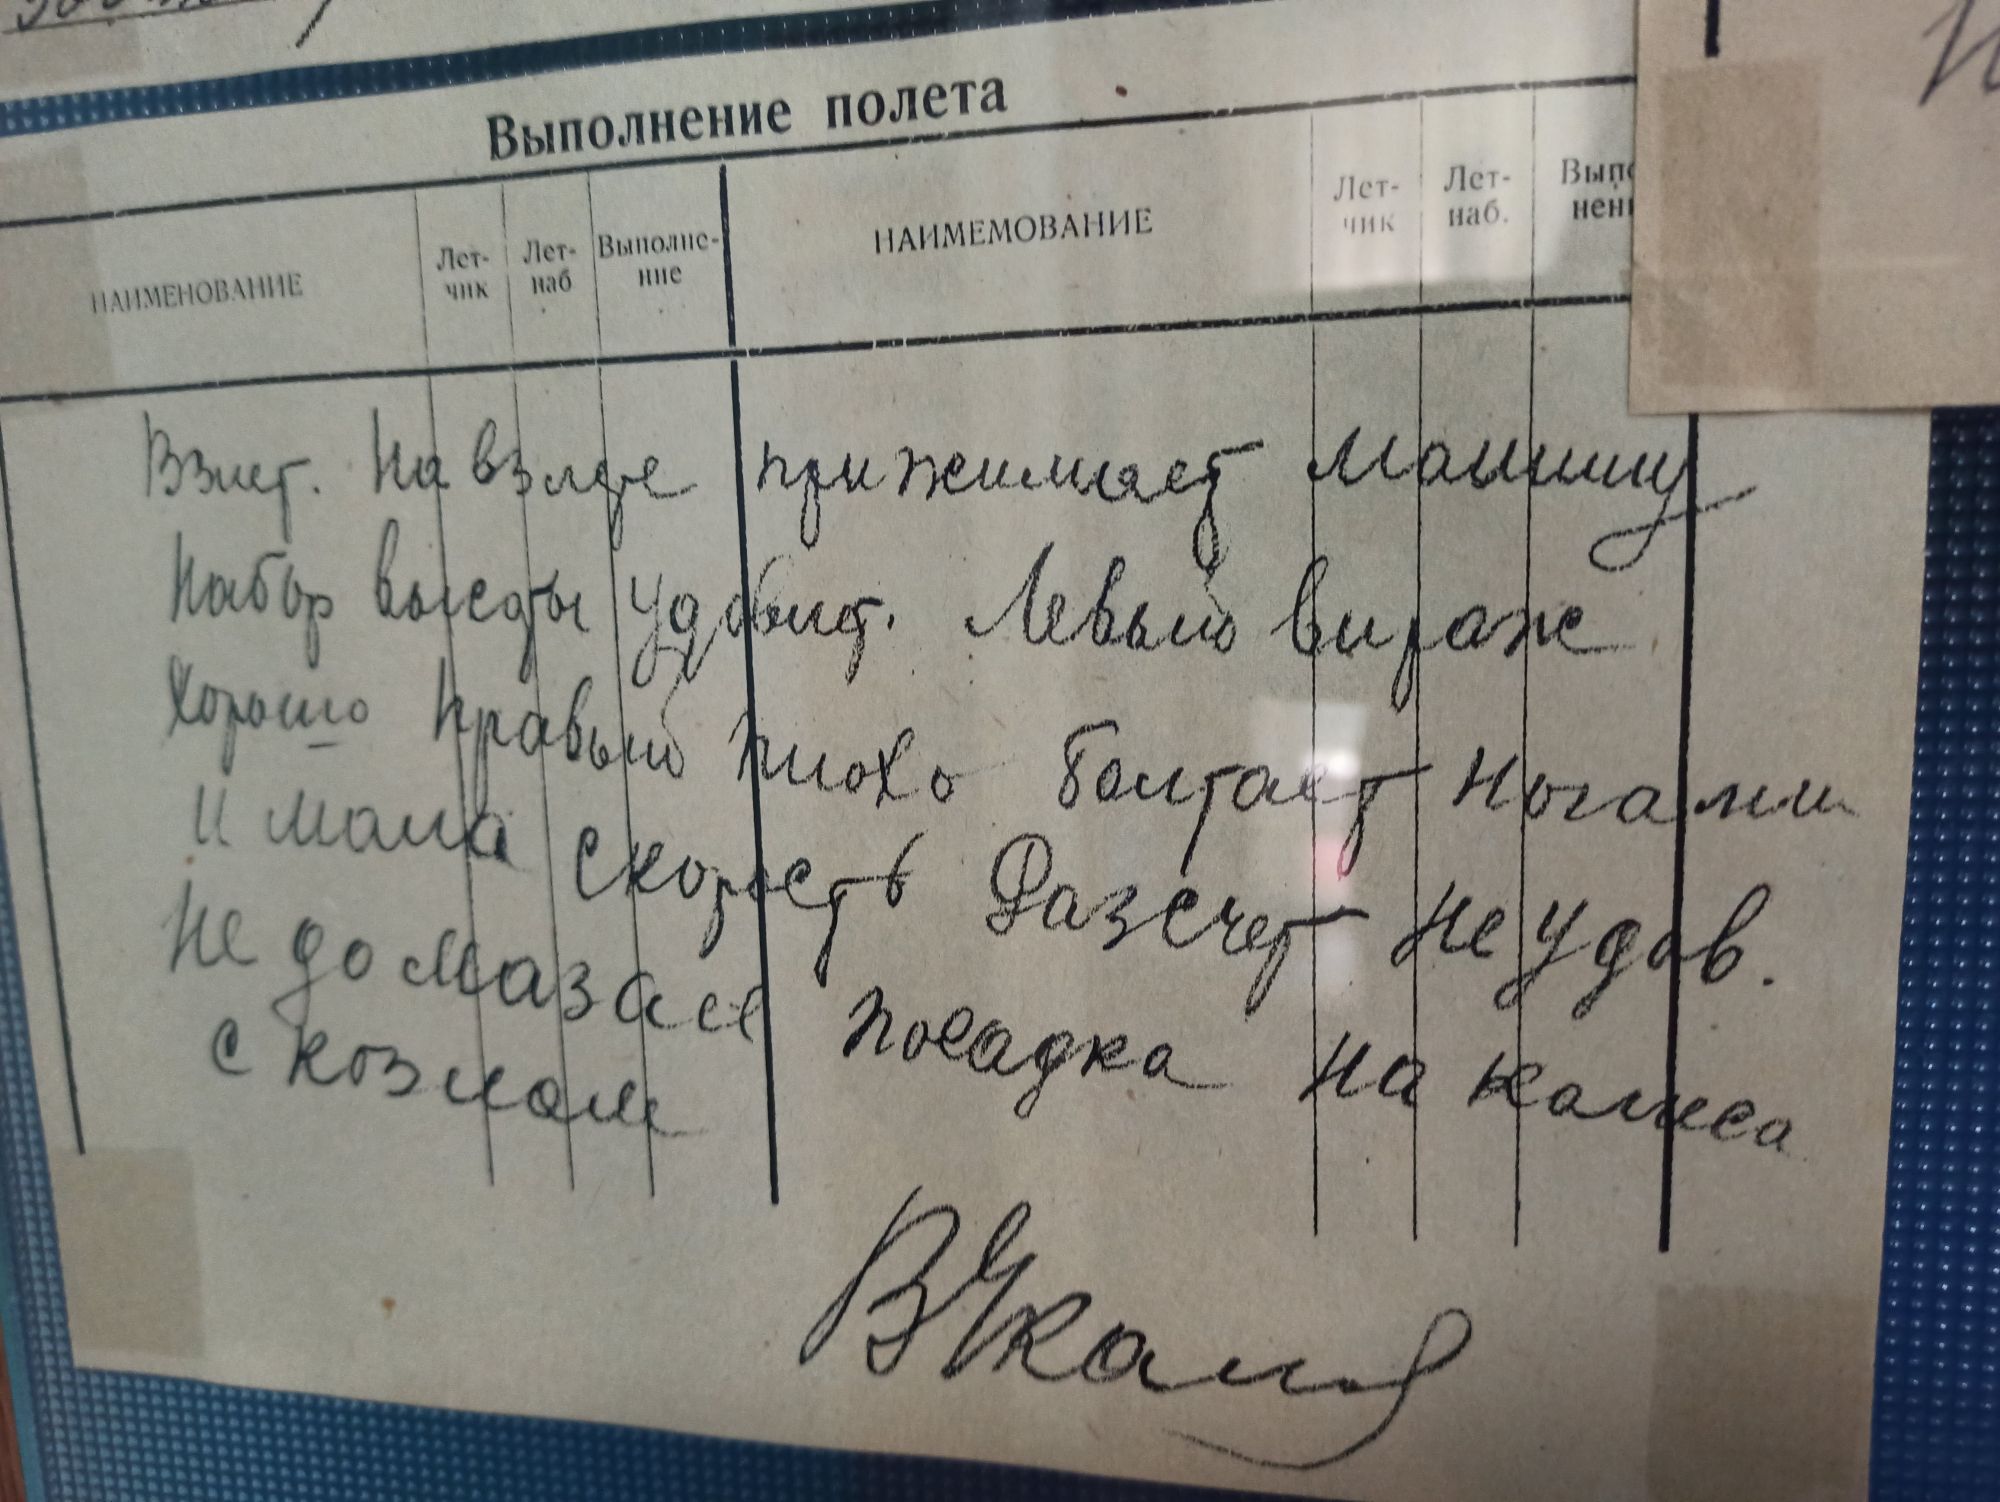 Выполнение полета
НАИМЕНОВАНИЕ Лет-чик Лет-наб Выполне-ние НАИМЕМОВАНИЕ Лет-чик Лет-наб. Выпо нен
Взлет. На взлете прижимает машину
Набор высоты удовлет. Левый вираж
Хорошо Правый плохо болтает ногами
и мала скорость Разсчет не удов.
Не домазал посадка на колеса
с козлом
ВЧкал